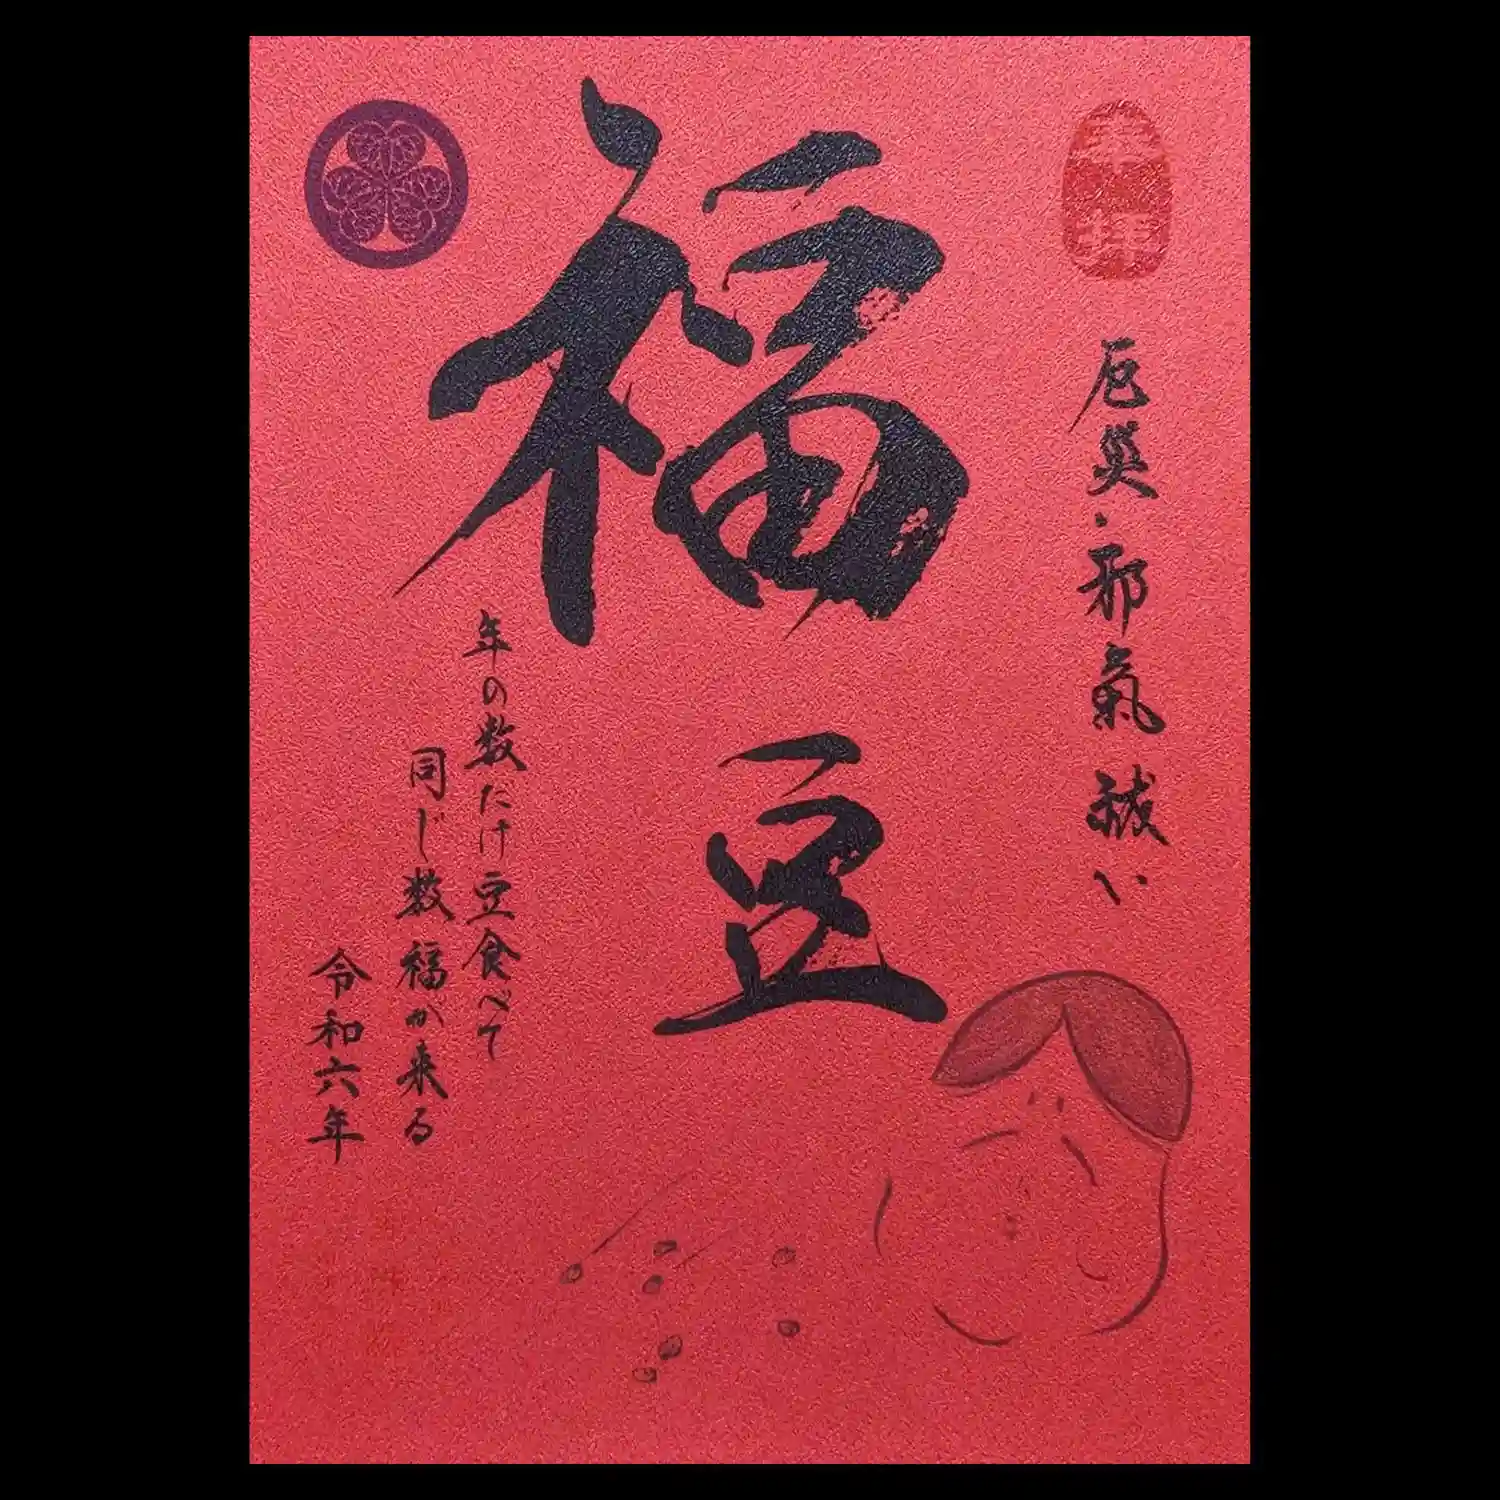 奉拝
厄災・邪氣祓い
福豆
年の数だけ豆食べて
同じ数福が来る
令和六年